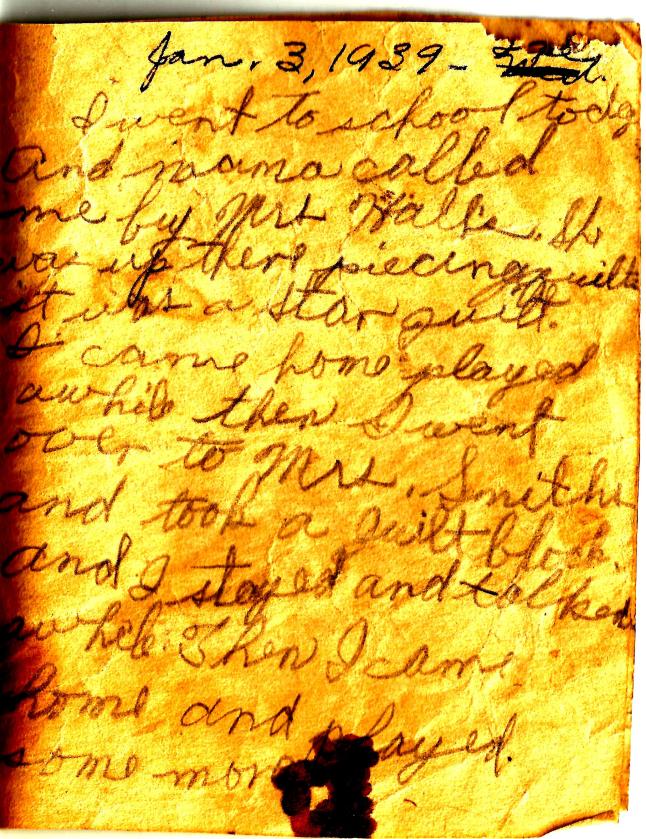 Jan. 3, 1939 -
I went to school today
And mama called
me by Mrs Walls. Sh
was up there piecing quilts
it was a star quilt.
I came home played
awhile then I went
over to Mrs. Smiths
and took a quilt block.
and I stayed and talked
awhile. Then I came
home and played.
some more